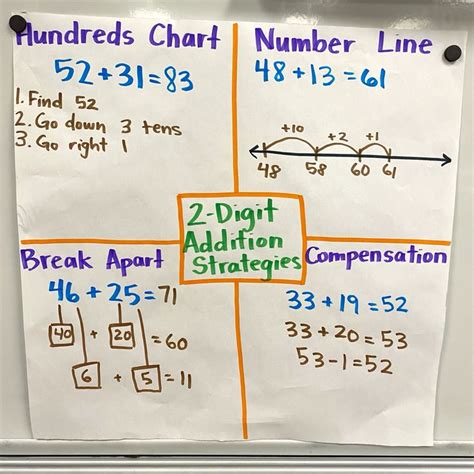 Hundreds Chart
52+31=83
1. Find 52
2. Go down 3 tens
3. Go right 1
Number Line
48+13=61
+10 +2 +1
48 58 60 61
2-Digit
Addition
Strategies
Break Apart
46+25=71
40 + 20 =60
6 + 5 =11
Compensation
33+19=52
33+20=53
53-1=52